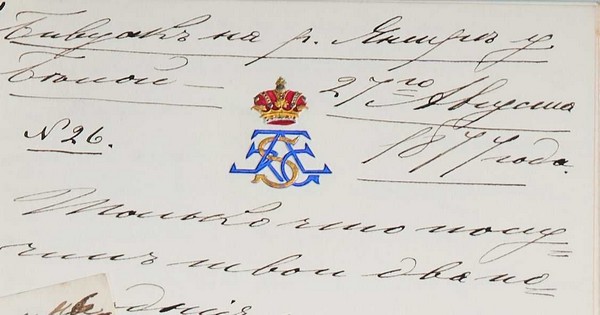 Бивуакъ на р. Янтрѣ у
Бѣлой —
27го Августа
N 26.
1877 года.
Только что полу=
чилъ твои два по=